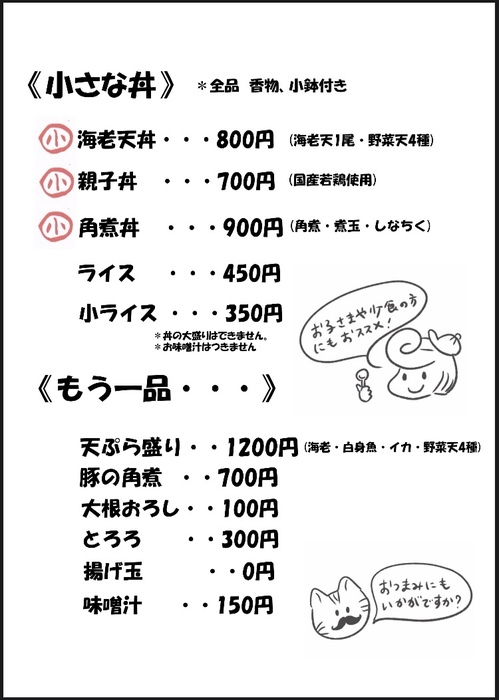 《小さな丼》 ＊全品 香物、小鉢付き
小 海老天丼・・・800円 (海老天1尾・野菜天4種)
小 親子丼 ・・・700円 (国産若鶏使用)
小 角煮丼 ・・・900円 (角煮・煮玉・しなちく)
ライス ・・・450円
小ライス ・・・350円
＊丼の大盛りはできません。
＊お味噌汁はつきません
お子さまや少食の方
にもおススメ！
《もう一品・・・》
天ぷら盛り・・1200円 (海老・白身魚・イカ・野菜天4種)
豚の角煮 ・・700円
大根おろし・・100円
とろろ ・・300円
揚げ玉 ・・0円
味噌汁 ・・150円
おつまみにも
いかがですか？